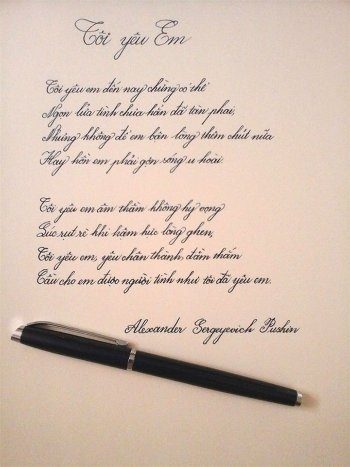 Tôi yêu Em
Tôi yêu em đến nay chừng có thể
Ngọn lửa tình chưa hẳn đã tàn phai;
Nhưng không để em bận lòng thêm chút nữa
Hay hồn em phải gợn sóng u hoài.
Tôi yêu em âm thầm không hy vọng
Lúc rụt rè khi hậm hực lòng ghen,
Tôi yêu em, yêu chân thành, đằm thắm
Cầu cho em được người tình như tôi đã yêu em.
Alexander Sergeyevich Pushin